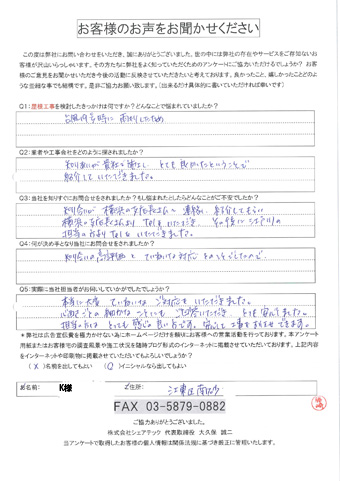 お客様のお声をお聞かせください
この度は弊社にお問い合わせをいただき、誠にありがとうございました。世の中には弊社の存在やサービスをご存知ないお
客様が沢山いらっしゃいます。その方たちに弊社をよく知っていただくためのアンケートにご協力いただけるでしょうか？お客
様のご意見をお聞かせいただき今後の活動に反映させていただきたいと考えております。良かったこと、嬉しかったことどのよ
うな些細な事でも結構です。是非ご協力お願い致します。（出来るだけ具体的に書いていただければ幸いです）
Q1：屋根工事を検討したきっかけは何ですか？どんなことで悩まれていましたか？
台風の時に雨もりしたため
Q2：業者や工事会社をどのように探されましたか？
知りあいが貴社で施工し、とても良かったということで
紹介していただきました。
Q3：当社を知りすぐにお問合せをされましたか？もし悩まれたとしたらどんなことがご不安でしたか？
知り合いが横浜の
横浜の
担当の方より Tel をいただきました。
Q4：何が決め手となり当社にお問合せをされましたか？
知り合いの高評価とていねいな対応
Q5：実際に当社担当者がお伺いしていかがでしたでしょうか？
本当に大変ていねいなご対応をいただきました。
心配ごとの細かなことにも
担当の方はとっても感じの良い方です。安心して工事をおまかせできます。
＊弊社は広告宣伝費を極力かけない為にホームページだけを頼りにお客様への営業活動を行っております。本アンケート
用紙またはお客様宅の調査風景や施工状況を随時ブログ形式でインターネットに掲載させていただいております。上記内容
をインターネットや印刷物に掲載させていただいてもよろしいでしょうか？
（X）名前を出してもよい （O）イニシャルなら出してもよい
お名前： K様 ご住所： 江東区南砂
FAX 03-5879-0882
ご協力ありがとうございました。
株式会社シェアテック 代表取締役 大久保 誠二
当アンケートで取得したお客様の個人情報は関係法規に基づき厳正に管理いたします。